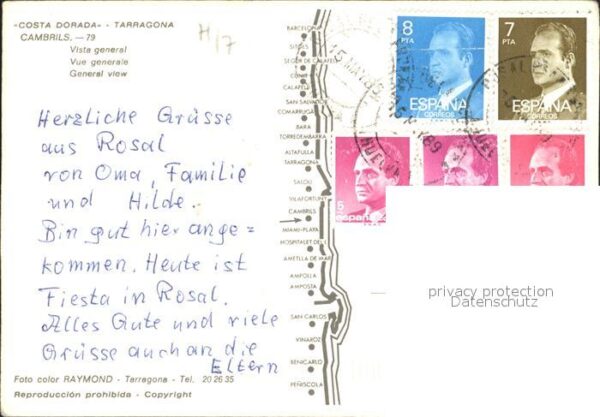 «COSTA DORADA» - TARRAGONA
CAMBRILS, — 79
Vista general
Vue generale
General view
H/7
Herzliche Grüsse
aus Rosal
von Oma, Familie
und Hilde.
Bin gut hier ange=
kommen. Heute ist
Fiesta in Rosal.
Alles Gute und viele
Grüsse auch an die
Eltern
Foto color RAYMOND - Tarragona - Tel. 20 26 35
Reproducción prohibida - Copyright
BARCELONA
SITGES
SEGUR DE CALAFELL
CALAFELL
SAN SALVADOR
COMARRUGA
BARA
TORREDEMBARRA
ALTAFULLA
TARRAGONA
SALOU
VILAFORTUNY
CAMBRILS
MIAMI-PLAYA
HOSPITALET DE L
AMETLLA DE MAR
AMPOLLA
AMPOSTA
SAN CARLOS
VINAROZ
BENICARLO
PEÑISCOLA
8
PTA
ESPAÑA
CORREOS
7
PTA
ESPAÑA
CORREOS
5
españa
HUELVA
privacy protection
Datenschutz